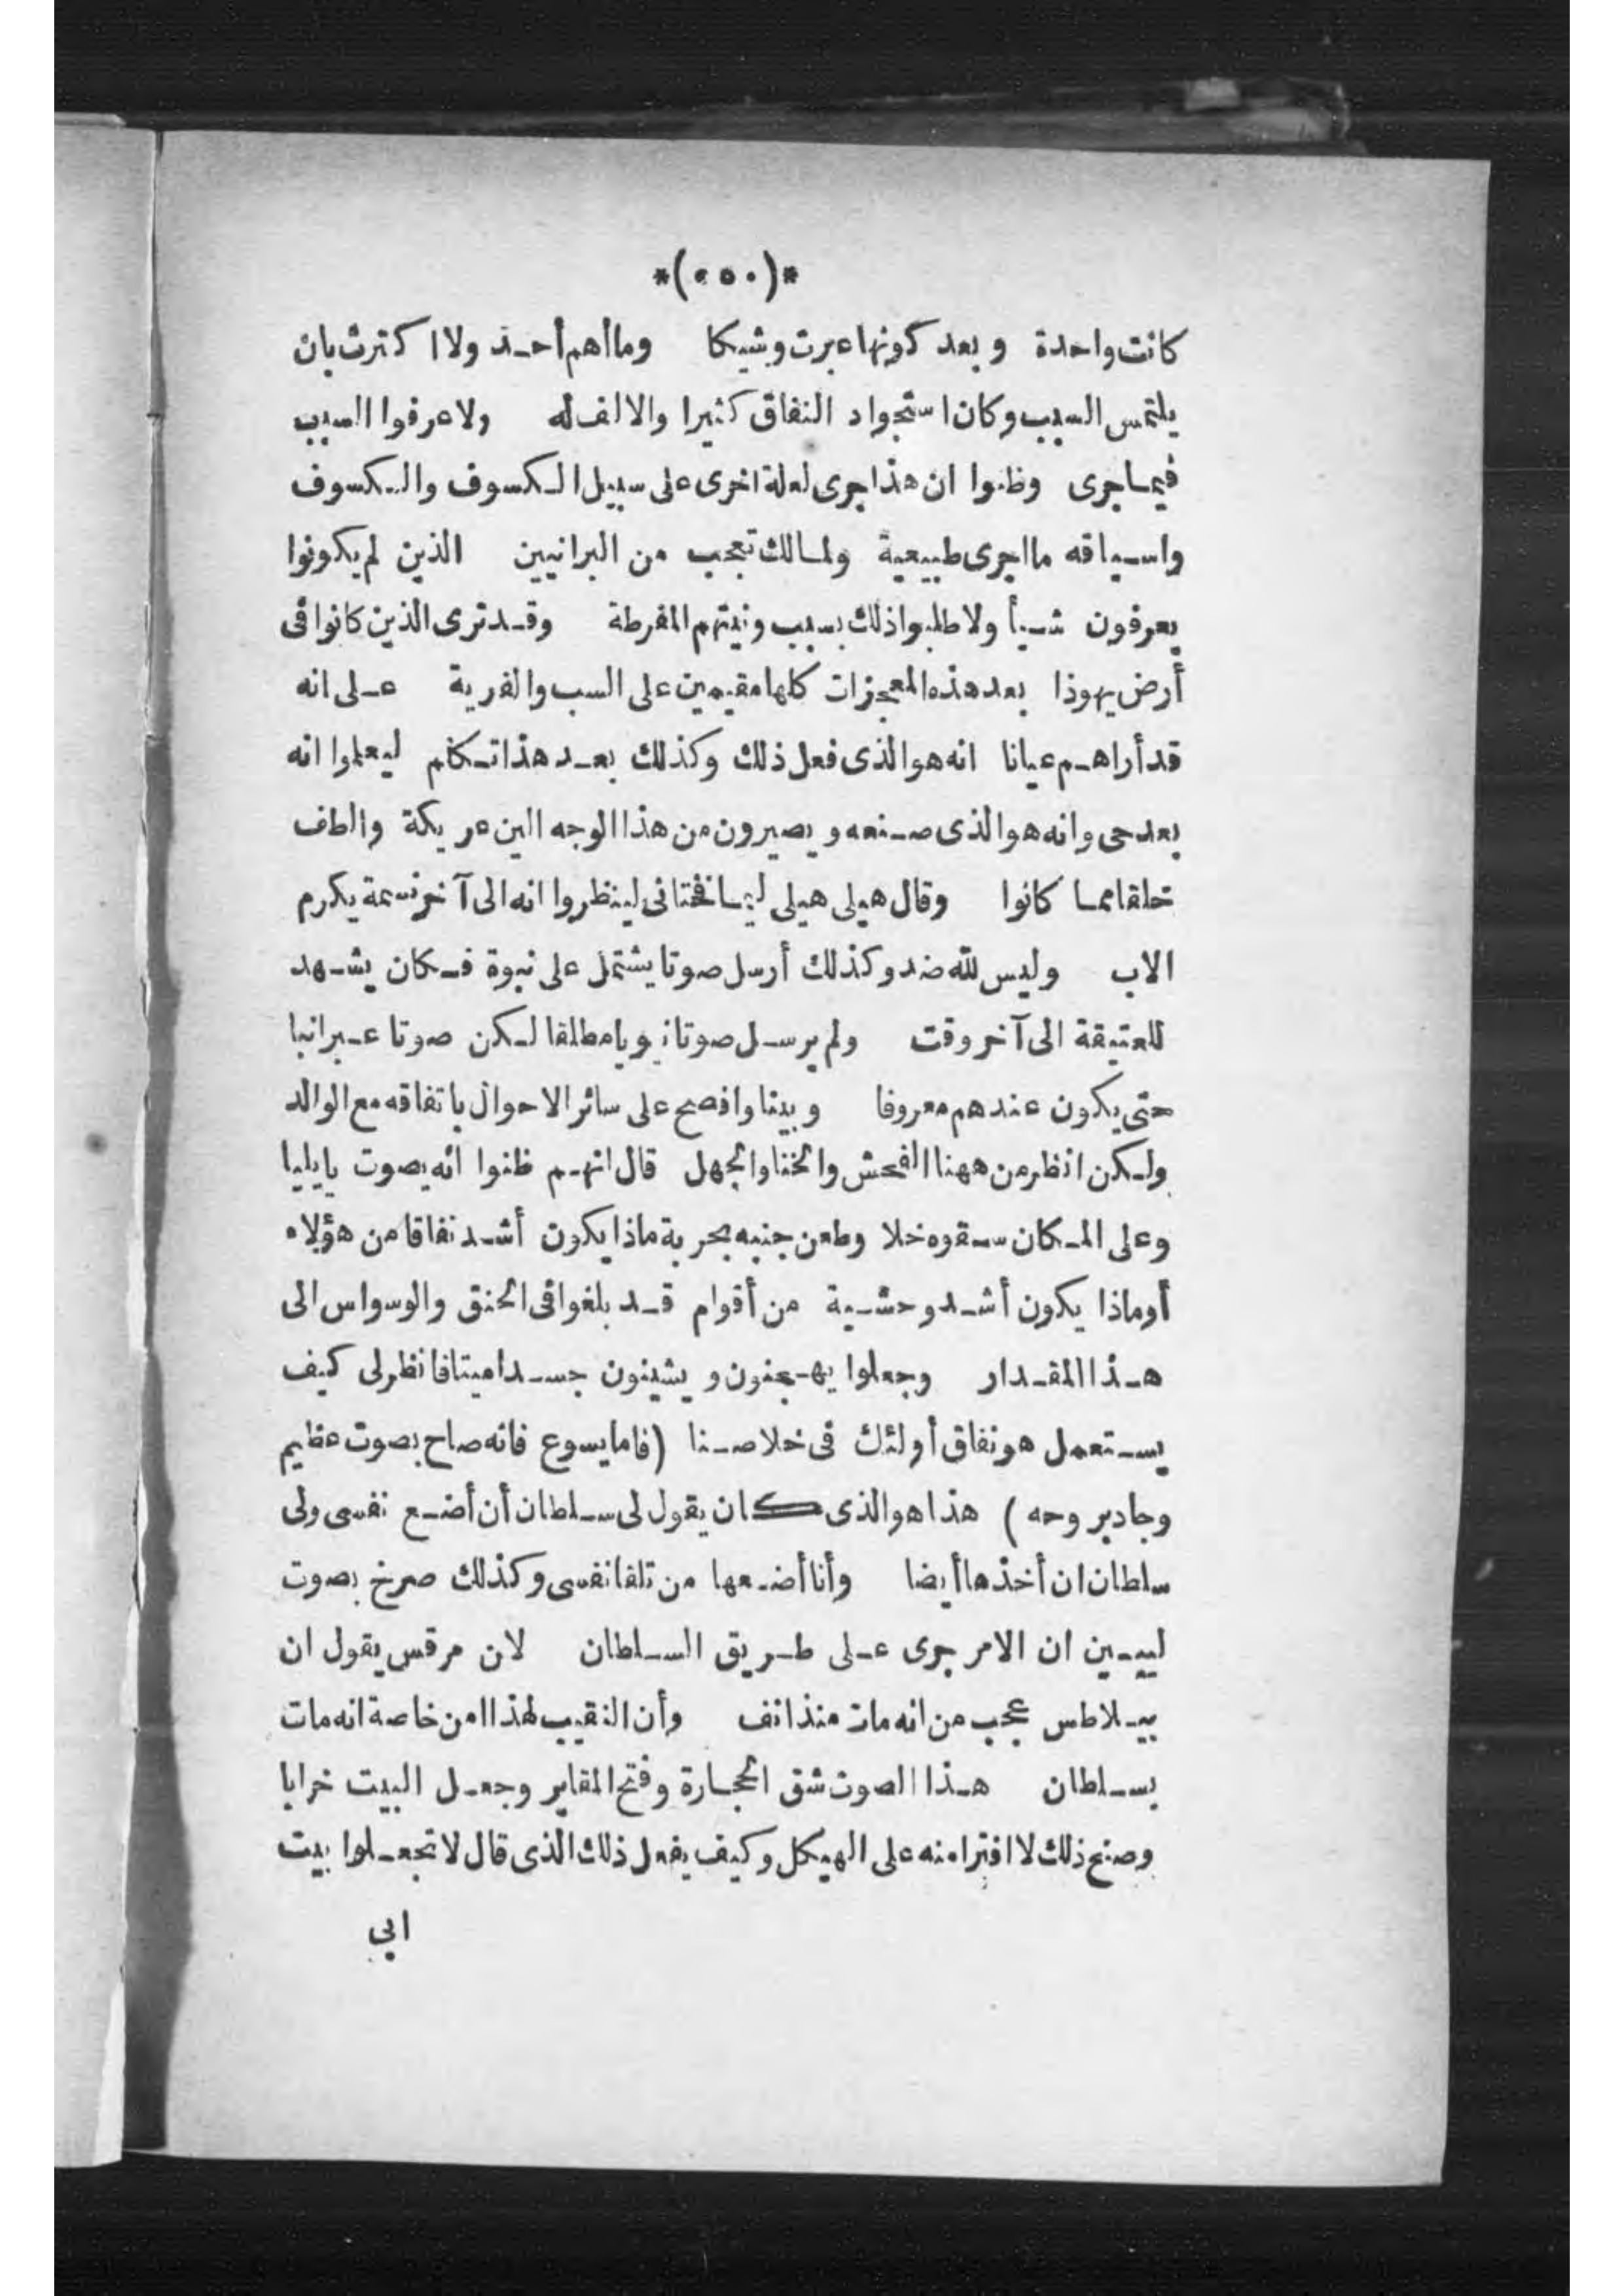 *(٥٥٠)*
كانت واحدة وبعد كونها عبرت وشيكا وما أهم أحد ولا اكترث بان
يلتمس السبب وكان استجواد النفاق كثيرا والالف له ولا عرفوا السبب
فيما جرى وظنوا ان هذا جرى لعلة اخرى على سبيل الكسوف والكسوف
واسياقه ما اجرى طبيعية ولما لك تعجب من البرانيين الذين لم يكونوا
يعرفون شيأ ولا طلبوا ذلك بسبب ونيتهم المفرطة وقد ترى الذين كانوا فى
أرض يهوذا بعد هذه المعجزات كلها مقيمين على السب والفرية على انه
قد أراهم عيانا انه هو الذى فعل ذلك وكذلك بعد هذا تكلم ليعلموا انه
بعد حى وانه هو الذى صنعه ويصيرون من هذا الوجه الين عريكة والطف
خلقا مما كانوا وقال هيلى هيلى ليما نختانى لينظروا انه الى آخر نسمة يكرم
الاب وليس لله ضد وكذلك أرسل صوتا يشتمل على نبوة فكان يشهد
للعتيقة الى آخر وقت ولم يرسل صوتا نبويا مطلقا لكن صوتا عبرانيا
حتى يكون عندهم معروفا وبينا وافصح على سائر الاحوال باتفاقه مع الوالد
ولكن انظر من ههنا الفحش والخنا والجهل قال انهم ظنوا انه يصوت يايليا
وعلى المكان سقوه خلا وطعن جنبه بحربة ماذا يكون أشد نفاقا من هؤلاء
أوماذا يكون أشد وحشية من أقوام قد بلغوا فى الحنق والوسواس الى
هذا المقدار وجعلوا يهجنون ويشينون جسدا ميتا فانظر لى كيف
يستعمل هو نفاق أولئك فى خلاصنا (فاما يسوع فانه صاح بصوت عظيم
وجاد بروحه) هذا هو الذى كان يقول لى سلطان أن أضع نفسى ولى
سلطان ان أخذها أيضا وأنا أضعها من تلقا نفسى وكذلك صرخ بصوت
ليبين ان الامر جرى على طريق السلطان لان مرقس يقول ان
بيلاطس عجب من انه مات منذ انف وأن النقيب لهذا امن خاصة انه مات
بسلطان هذا الصوت شق الحجارة وفتح المقابر وجعل البيت خرابا
وصنع ذلك لا افترا منه على الهيكل وكيف يفعل ذلك الذى قال لا تجعلوا بيت
ابى